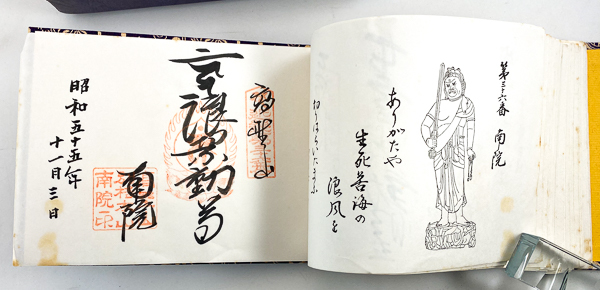 第三十六番 南院
ありがたや
生死苦海の
浪風を
高野山
浪切不動尊
南院
昭和五十五年
十一月三日